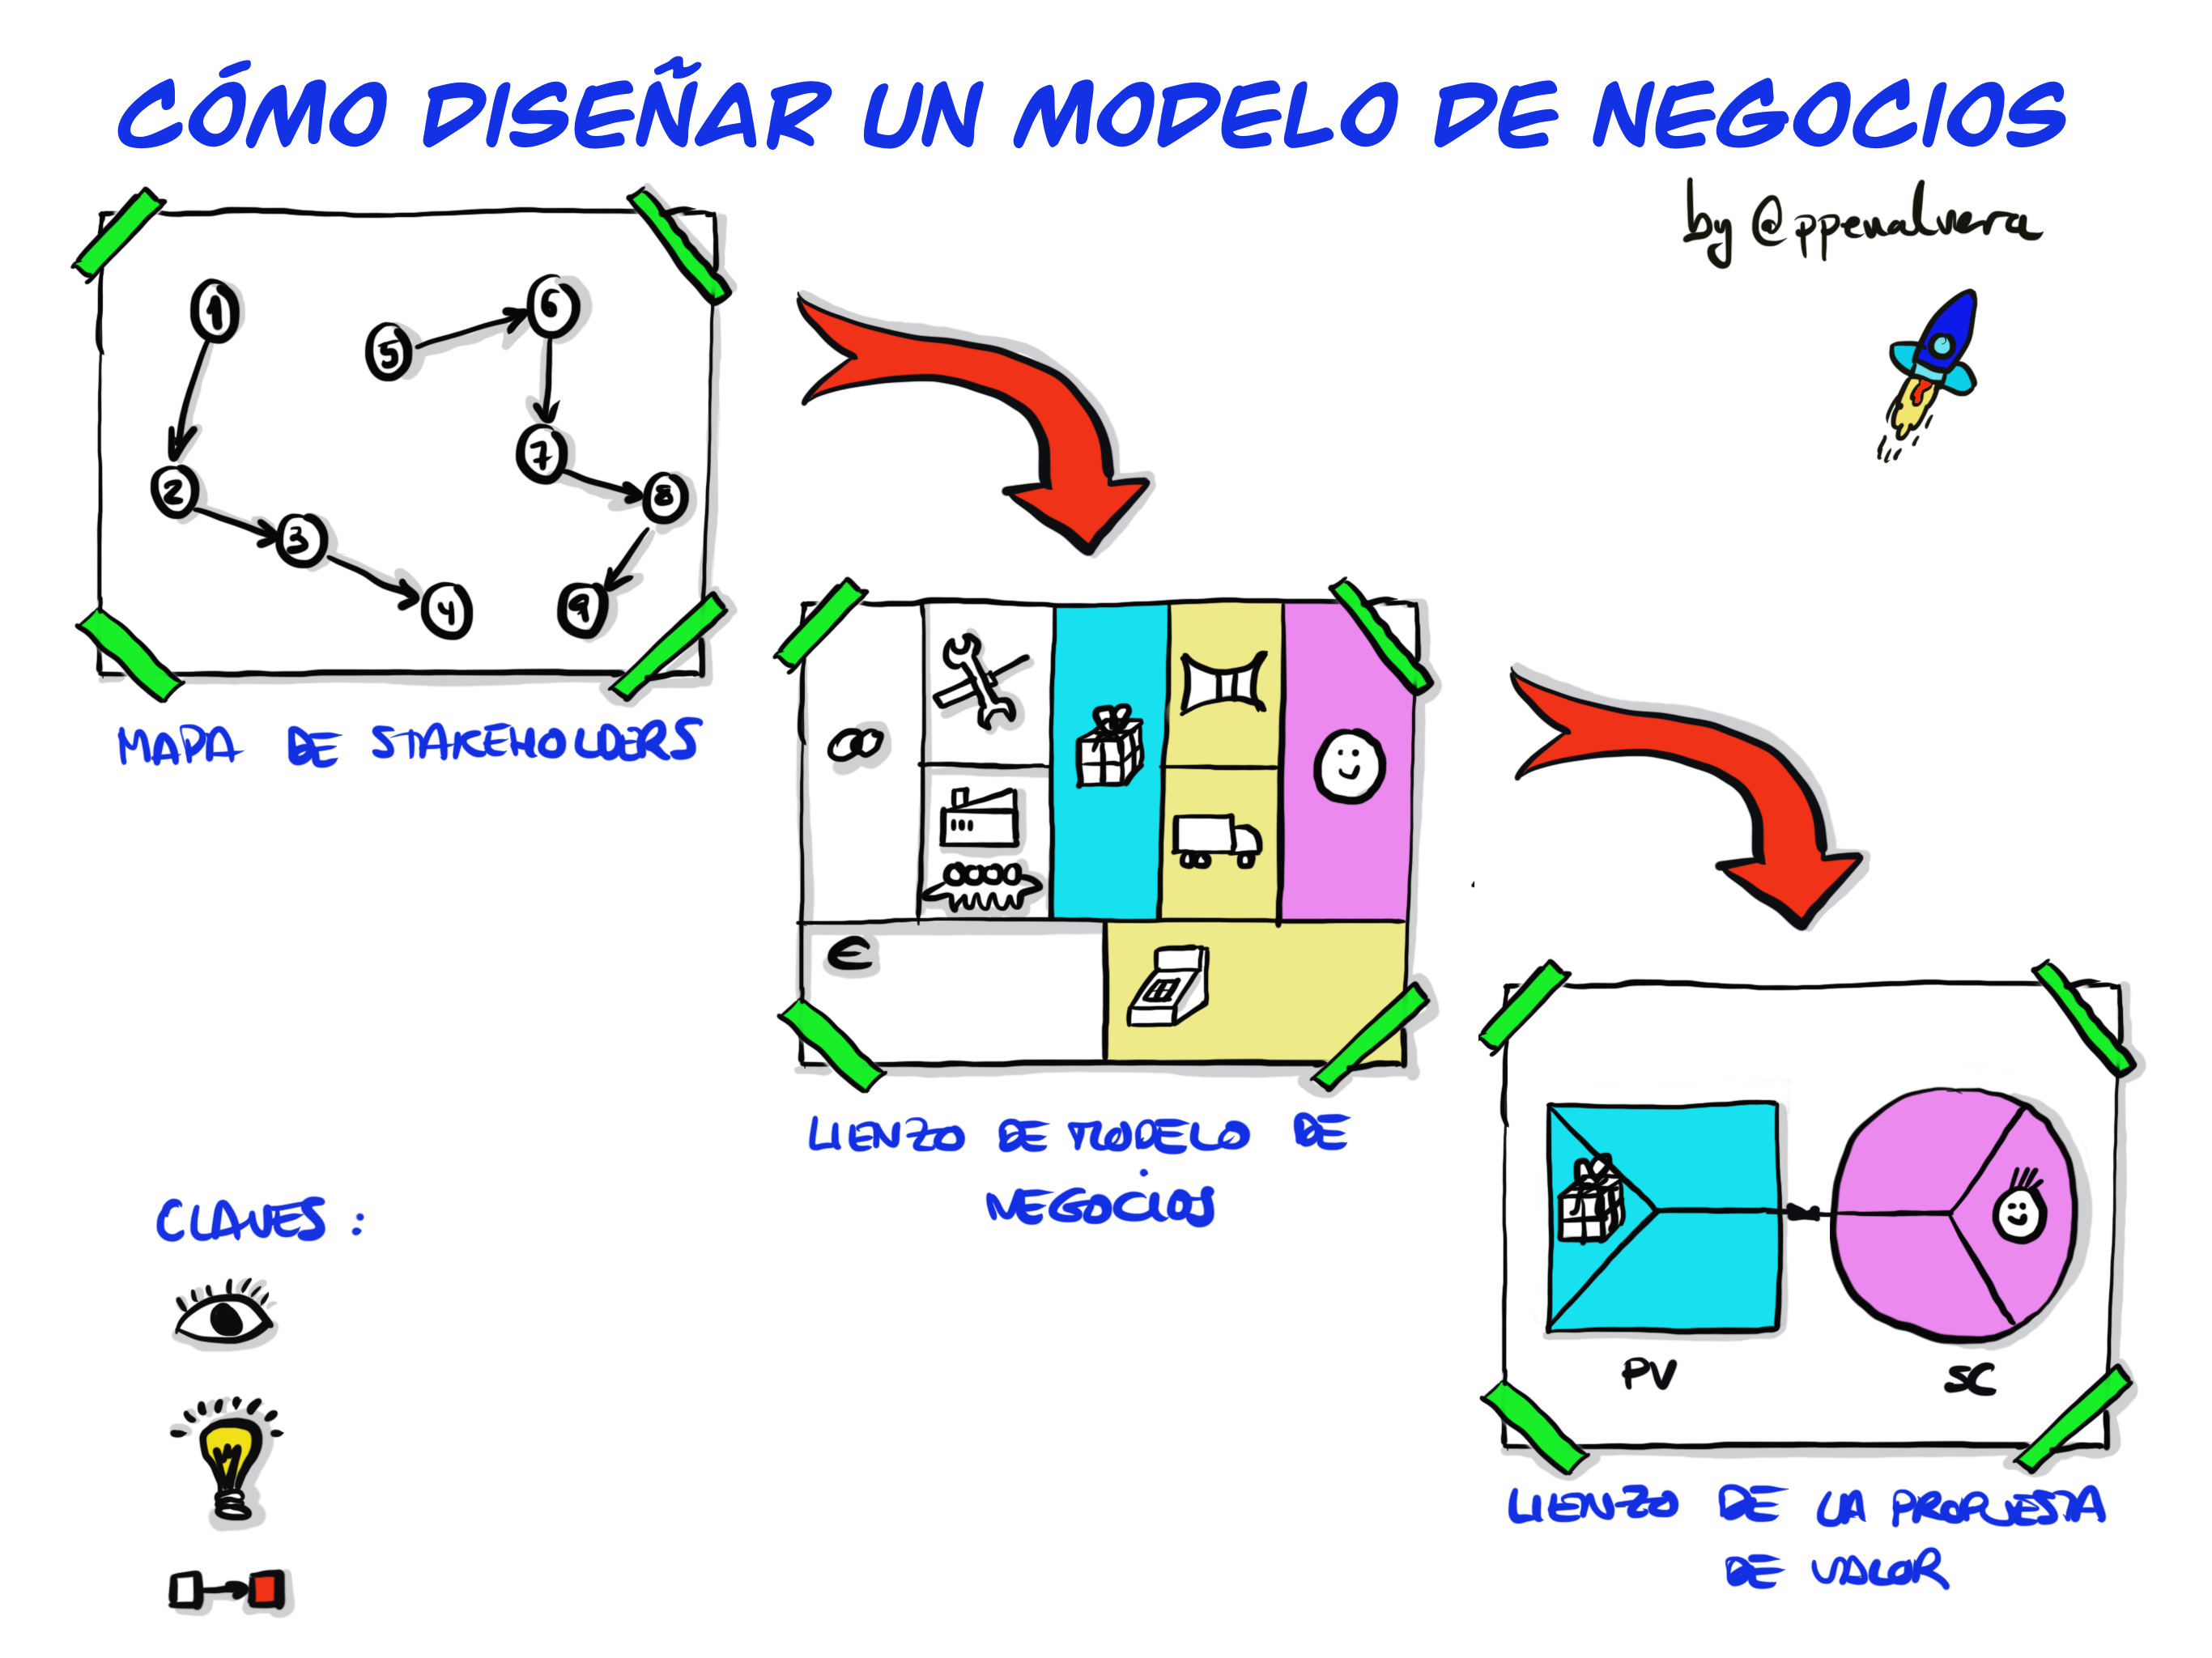 CÓMO DISEÑAR UN MODELO DE NEGOCIOS
by @ppenalvera
1
2
3
4
5
6
7
8
9
MAPA DE STAKEHOLDERS
€
LIENZO DE MODELO DE
NEGOCIOS
PV
SC
LIENZO DE LA PROPUESTA
DE VALOR
CLAVES: